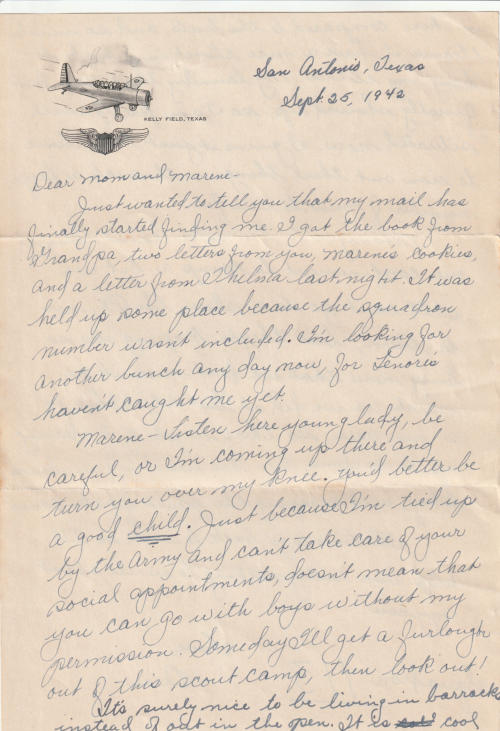 San Antonio, Texas
Sept. 25, 1942
KELLY FIELD, TEXAS
Dear Mom and Marene-
Just wanted to tell you that my mail has
finally started finding me. I got the book from
Grandpa, two letters from you, Marene's cookies,
and a letter from Thelma last night. It was
held up some place because the squadron
number wasn't included. I'm looking for
another bunch any day now, for Lenore's
haven't caught me yet.
Marene- Listen here young lady, be
careful, or I'm coming up there and
turn you over my knee. You'd better be
a good child. Just because I'm tied up
by the Army and can't take care of your
social appointments, doesn't mean that
you can go with boys without my
permission. Someday I'll get a furlough
out of this scout camp, then look out!
It's surely nice to be living in barracks
instead of out in the open. It is cool